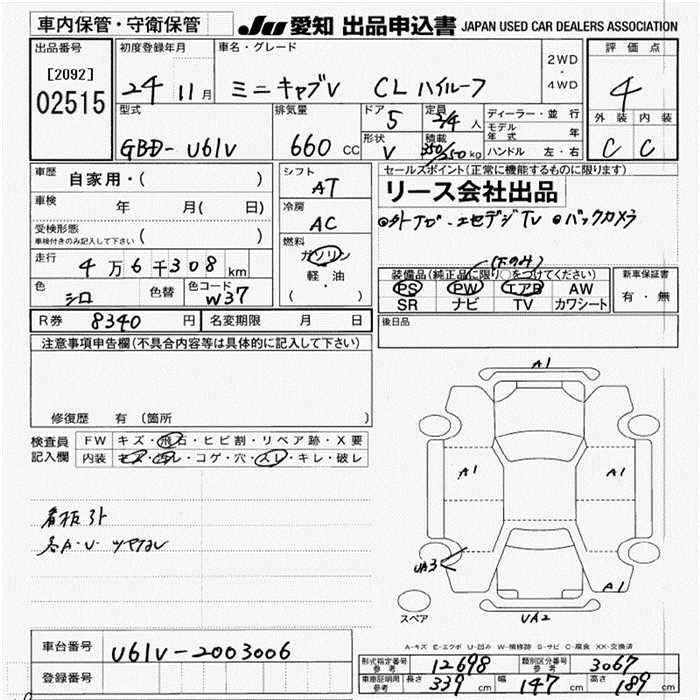 車内保管・守衛保管
JU 愛知 出品申込書 JAPAN USED CAR DEALERS ASSOCIATION
出品番号
[2092]
02515
初度登録年月
24 11 月
車名・グレード
ミニキャブV CL ハイルーフ
2WD
・
4WD
評価点
4
外装 内装
C C
型式
GBD-U61V
排気量
660 CC
ドア 5
形状 V
定員 2/4 人
積載 350/250 kg
ディーラー・並行
モデル年式 年
ハンドル 左・右
車歴 自家用・( )
車検 年 月( 日)
受検形態
車検付きのみ記入して下さい ( )
走行 4万6千308 km
色 シロ 色替 色コード W37
シフト
AT
冷房
AC
燃料
ガソリン
軽・油
( )
セールスポイント(正常に機能するものに限ります)
リース会社出品
バックカメラ
(下のみ)
装備品(純正品に限り○をつけてください)
PS PW エアB AW
SR ナビ TV カワシート
新車保証書
有・無
R券 8340 円 名変期限 月 日
後日品
注意事項申告欄(不具合内容等は具体的に記入して下さい)
修復歴 有(箇所 )
検査員記入欄
FW キズ・飛石・ヒビ割・リペア跡・X要
内装 キズ・汚レ・コゲ・穴・スレ・キレ・破レ
看板跡
各A・U・ツヤナシ
A1
A1 A1
UA3
A1
UA2
スペア
A-キズ E-エクボ U-凹み W-補修跡 S-サビ C-腐食 XX-交換済
車台番号 U61V-2003006
登録番号
形式指定番号 参考 12698 類別区分番号 参考 3067
車庫証明用 参考 長さ 339 cm 幅 147 cm 高さ 189 cm